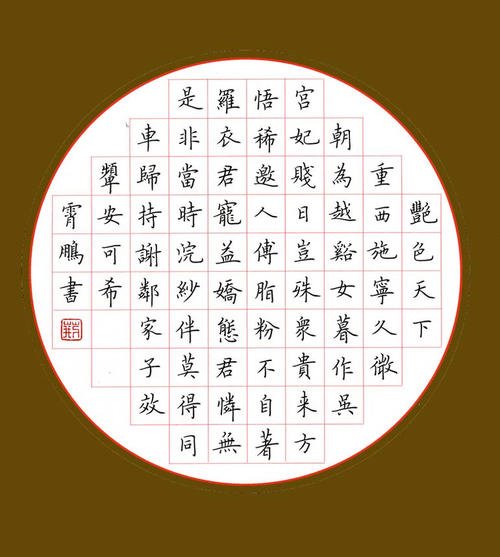 艷色天下
重西施寧久微
朝為越谿女暮作吳
宮妃賤日豈殊衆貴来方
悟稀邀人傅脂粉不自著
羅衣君寵益嬌態君憐無
是非當時浣紗伴莫得同
車歸持謝鄰家子效
顰安可希
霄鵬書